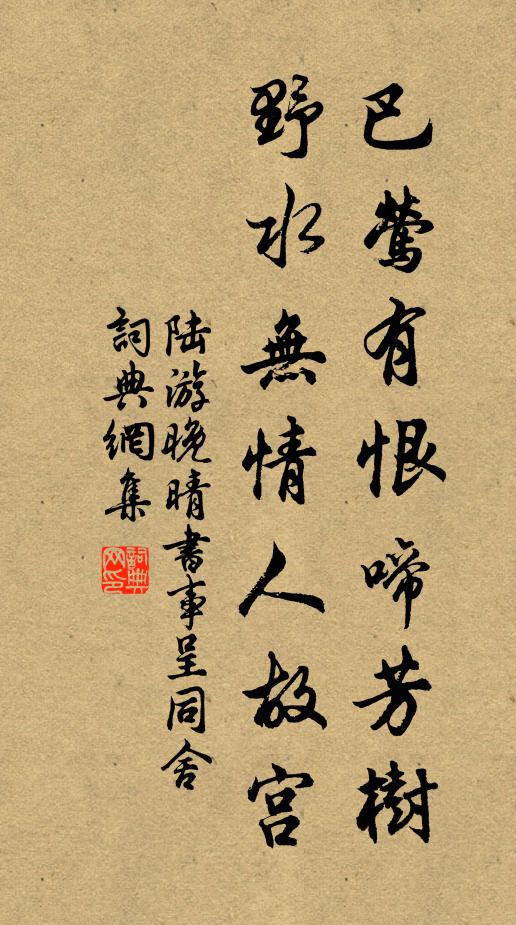 巴鶯有恨啼芳樹
野水無情人故宫
陆游晚晴書事呈同舍
詞典網集
詞典
网印